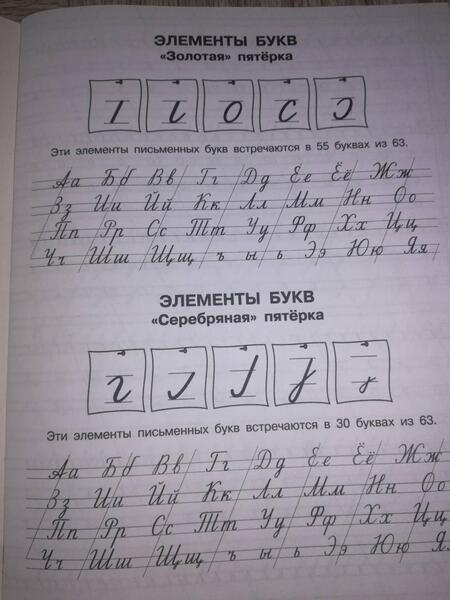 ЭЛЕМЕНТЫ БУКВ
«Золотая» пятёрка
Эти элементы письменных букв встречаются в 55 буквах из 63.
Аа Бб Вв Гг Дд Ее Ёё Жж
Зз Ии Йй Кк Лл Мм Нн Оо
Пп Рр Сс Тт Уу Фф Хх Цц
Чч Шш Щщ ъ ы ь Ээ Юю Яя
ЭЛЕМЕНТЫ БУКВ
«Серебряная» пятёрка
Эти элементы письменных букв встречаются в 30 буквах из 63.
Аа Бб Вв Гг Дд Ее Ёё Жж
Зз Ии Йй Кк Лл Мм Нн Оо
Пп Рр Сс Тт Уу Фф Хх Цц
Чч Шш Щщ ъ ы ь Ээ Юю Яя